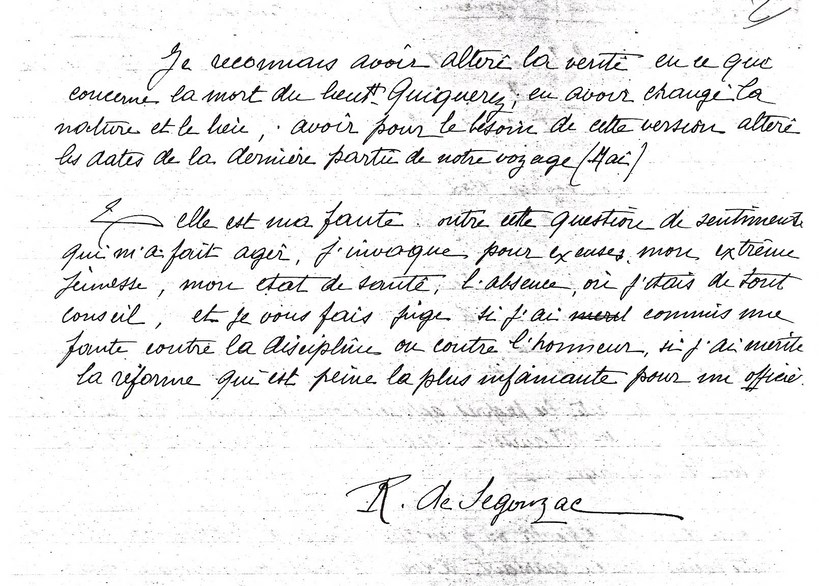 Je reconnais avoir altéré la verité en ce que
concerne la mort du lieutt Quiquerez, en avoir changé la
nature et le lieu, avoir pour le besoin de cette version altéré
les dates de la dernière partie de notre voyage (Mai)
Telle est ma faute. outre cette question de sentiments
qui m'a fait agir, j'invoque pour excuses, mon extrême
jeunesse, mon état de santé, l'absence, où j'étais de tout
conseil, et je vous fais juge si j'ai commis une
faute contre la discipline ou contre l'honneur, si j'ai mérité
la réforme qui est peine la plus infamante pour un officier.
R. de Segonzac